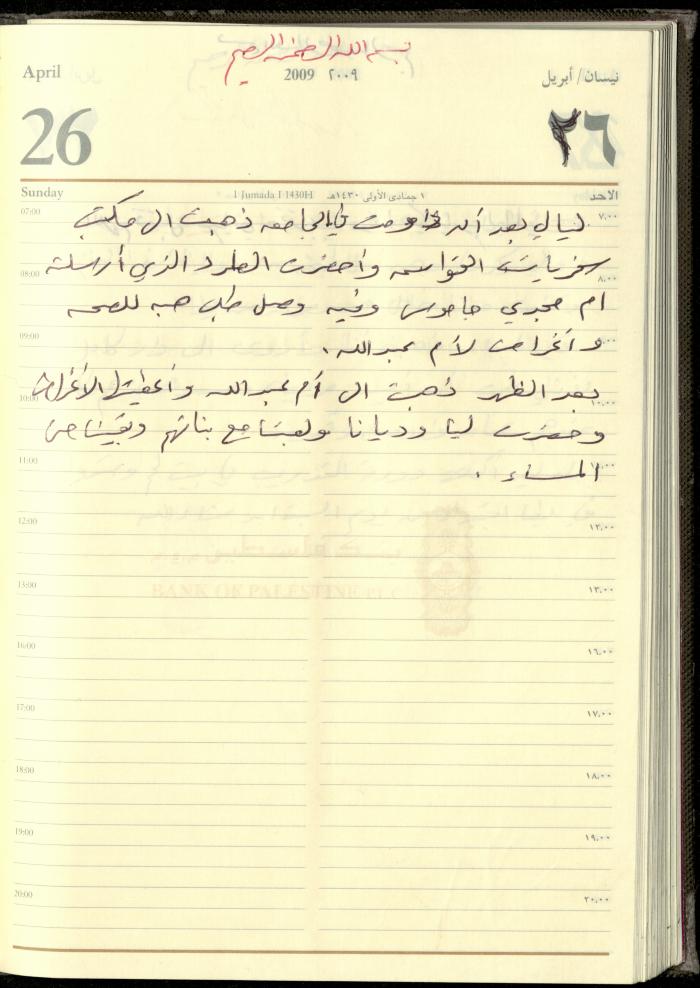 بسم الله الرحمن الرحيم
April 2009 ٢٠٠٩ نيسان/أبريل
26 ٢٦
Sunday 1 Jumada I 1430H ١ جمادى الأولى ١٤٣٠هـ الاحد
07:00 ٧,٠٠
ليالي بعد الدوام في الجامعه ذهبت الى مكتب
سفريات القواسمه وأحضرت الطرد الذي أرسلته
08:00 ٨,٠٠
ام مجدي جاموس وفيه وصل طلب هبه للصحه
09:00
وأغراض لأم عبدالله .
بعد الظهر ذهبت الى أم عبدالله وأعطيتها الأغراض
10:00 ١٠,٠٠
وحضرت لينا وديانا ولعبتا مع بناتهم وبقينا حتى
11:00
المساء .
12:00 ١٢,٠٠
BANK OF PALESTINE PLC
13:00 ١٣,٠٠
16:00 ١٦,٠٠
17:00 ١٧,٠٠
18:00 ١٨,٠٠
19:00 ١٩,٠٠
20:00 ٢٠,٠٠